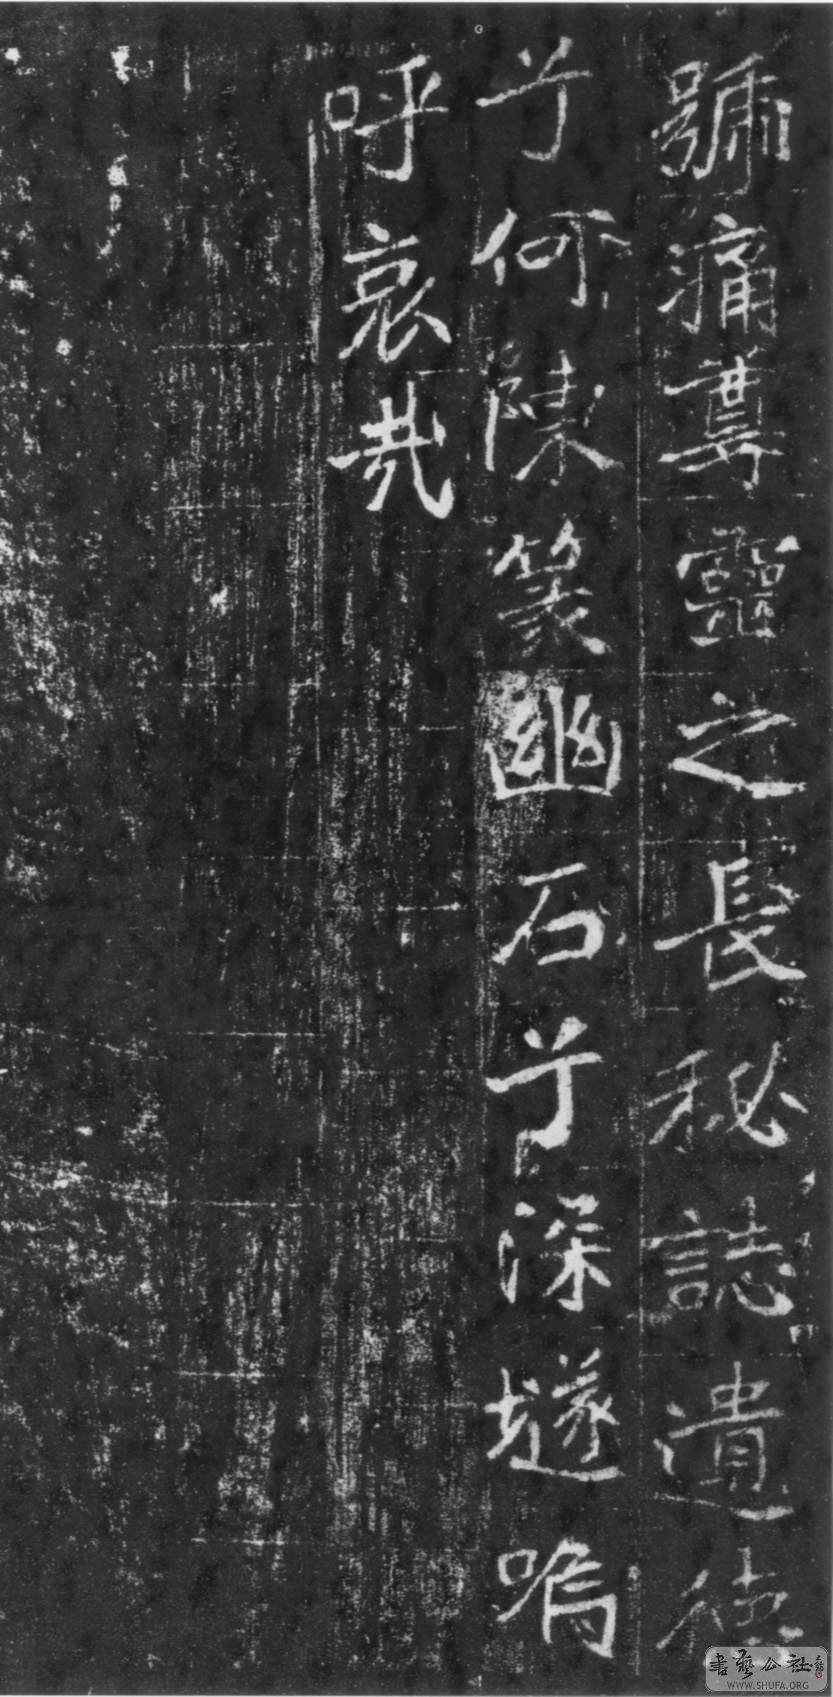 號痛尊靈之長秘誌遺德
兮何陳篆幽石兮深隧嗚
呼哀哉
書藝公社
WWW.SHUFA.ORG